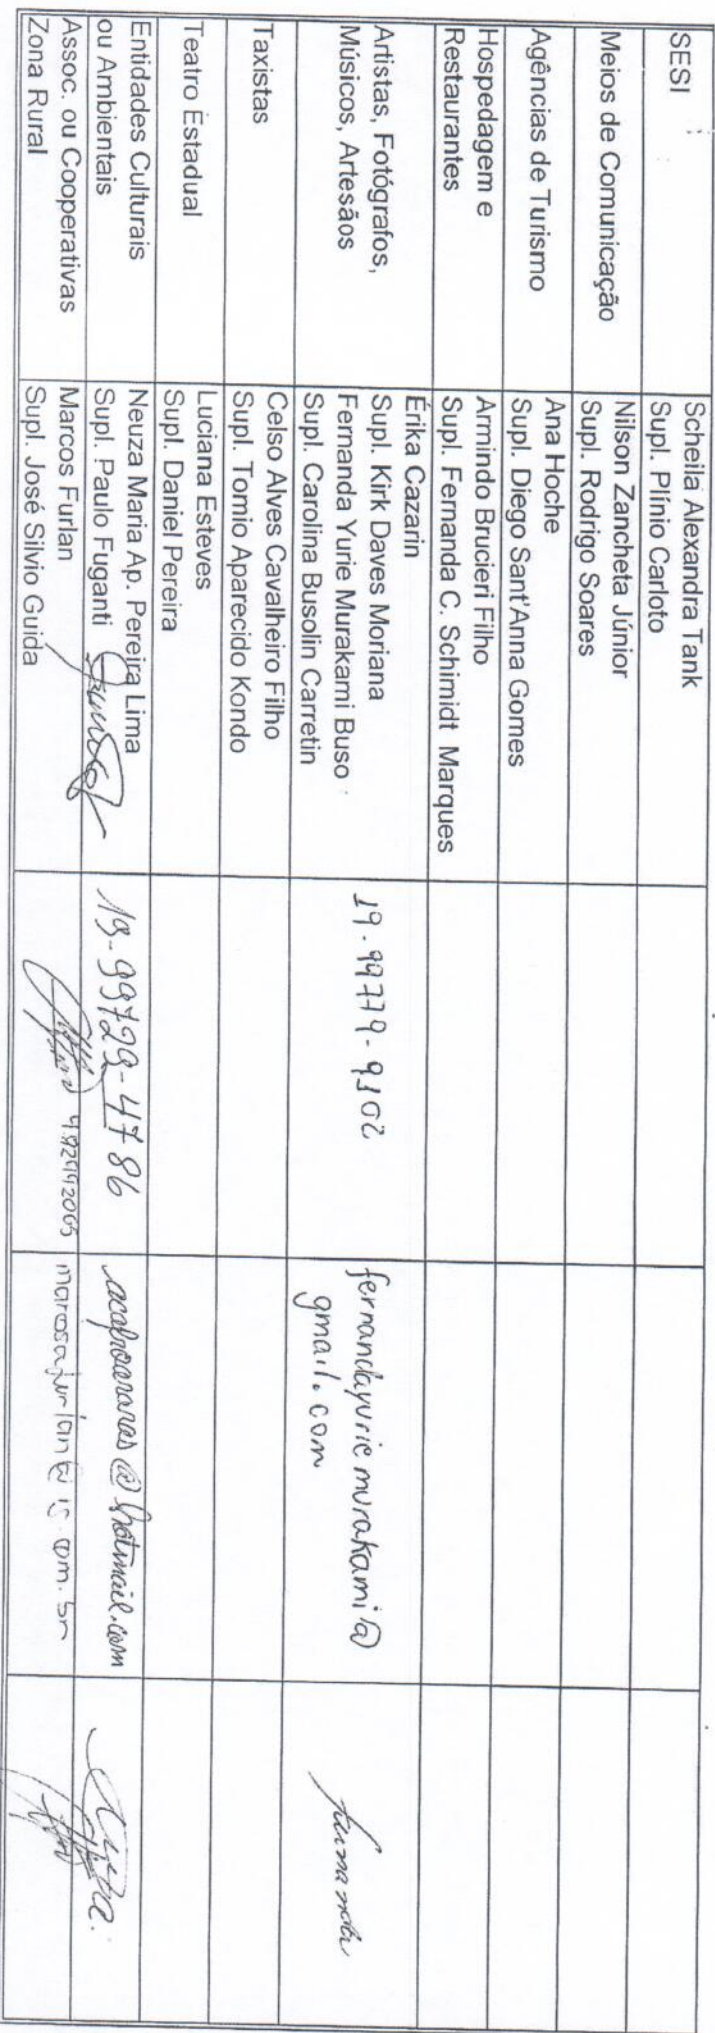 SESI
Scheila Alexandra Tank
Supl. Plínio Carloto
Meios de Comunicação
Nilson Zancheta Júnior
Supl. Rodrigo Soares
Agências de Turismo
Ana Hoche
Supl. Diego Sant'Anna Gomes
Hospedagem e
Restaurantes
Armindo Brucieri Filho
Supl. Fernanda C. Schimidt Marques
Artistas, Fotógrafos,
Músicos, Artesãos
Érika Cazarin
Supl. Kirk Daves Moriana
Fernanda Yurie Murakami Buso
Supl. Carolina Busolin Carretin
19-99779-9102
fernandayurie murakami@
gmail.com
Taxistas
Celso Alves Cavalheiro Filho
Supl. Tomio Aparecido Kondo
Teatro Estadual
Luciana Esteves
Supl. Daniel Pereira
Entidades Culturais
ou Ambientais
Neuza Maria Ap. Pereira Lima
Supl. Paulo Fuganti
19-99729-4786
@hotmail.com
Assoc. ou Cooperativas
Zona Rural
Marcos Furlan
Supl. José Silvio Guida